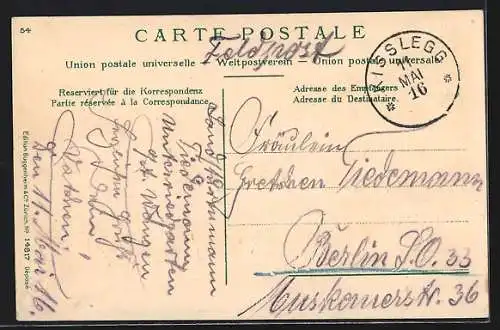 54
CARTE POSTALE
Feldpost
Union postale universelle — Weltpostverein — Union postale universale
Reserviert für die Korrespondenz
Partie réservée à la Correspondance.
Adresse des Empfängers
Adresse du Destinataire.
KISSLEGG
11
MAI
16
Landsturmmann
Tiedemann
Wangen
Dein
den 11. Mai 16.
Fräulein
Gretchen Tiedemann
Berlin S.O. 33
Muskauerstr. 36